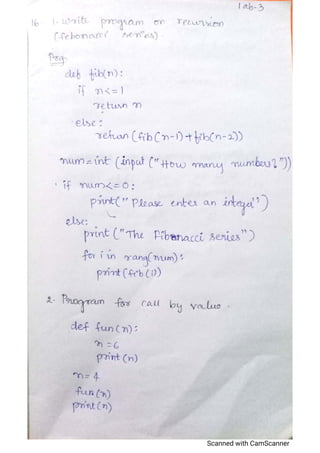 lab-3
16. 1. Write program on recursion
(febonacci series).
Prog
def fib(n):
if n<=1
return n
else:
return (fib(n-1)+fib(n-2))
num=int (input ("How many numbers?"))
if num<=0:
print("Please enter an integer")
else:
print ("The Fibonacci Series")
for i in rang(num):
print(feb(i))
2. Program for call by value.
def fun(n):
n=6
print(n)
n=4
fun(n)
print(n)
Scanned with CamScanner